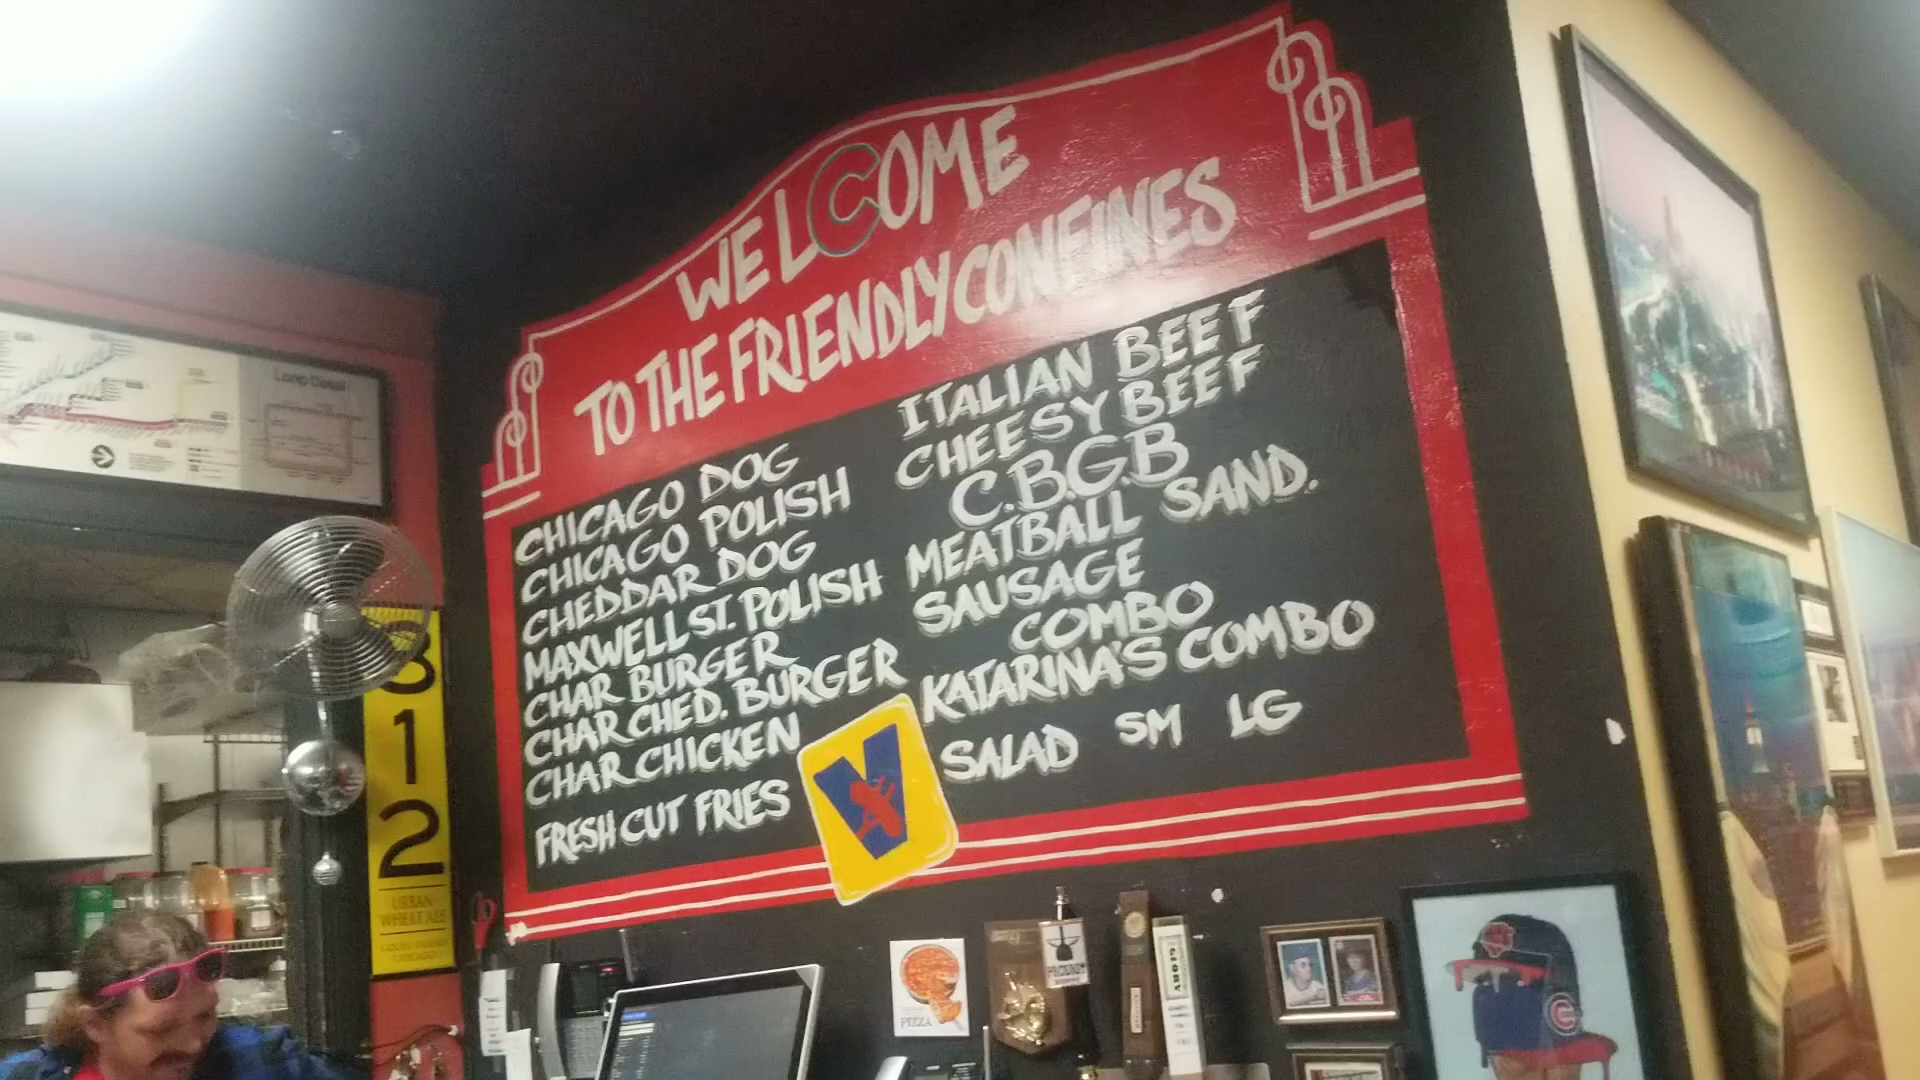 WELCOME
TO THE FRIENDLY CONFINES
CHICAGO DOG
CHICAGO POLISH
CHEDDAR DOG
MAXWELL ST. POLISH
CHAR BURGER
CHAR CHED. BURGER
CHAR CHICKEN
FRESH CUT FRIES
V
ITALIAN BEEF
CHEESY BEEF
C.B.G.B
MEATBALL SAND.
SAUSAGE
COMBO
KATARINA'S COMBO
SALAD SM LG
Loop Detail
312
URBAN
WHEAT ALE
PIZZA